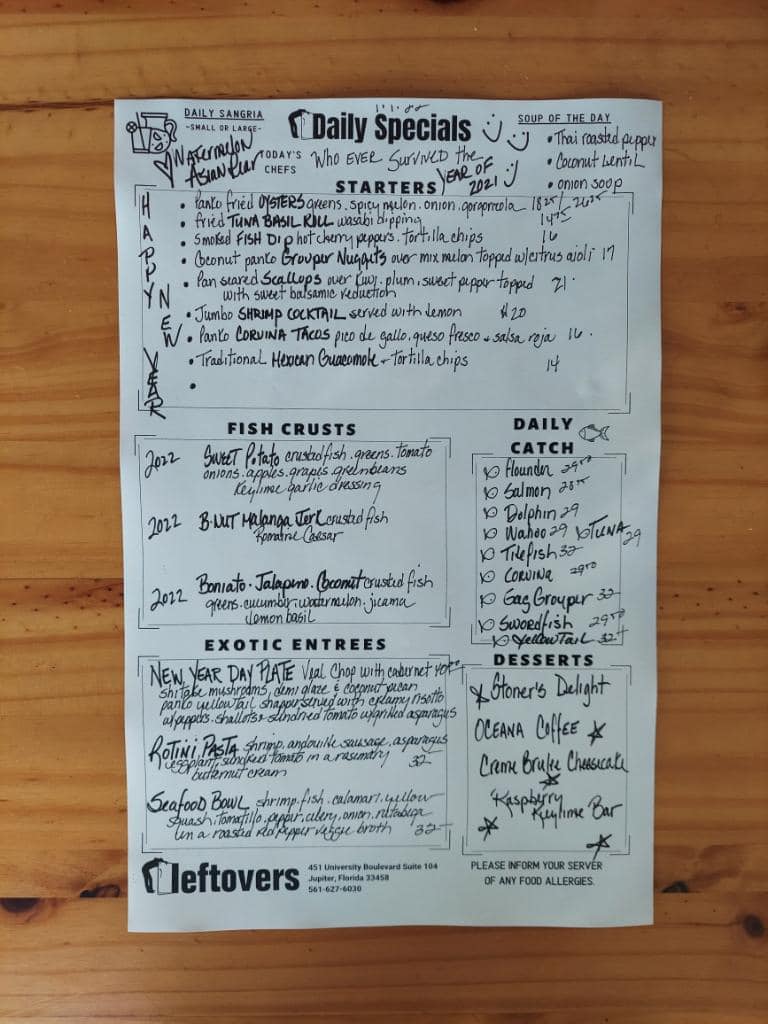 DAILY SANGRIA
-SMALL OR LARGE-
WATERMELON
ASIAN PEAR
1.1.22
Daily Specials
TODAY'S CHEFS
Who EVER Survived the
YEAR OF 2021
SOUP OF THE DAY
• Thai roasted pepper
• Coconut Lentil
• onion soup
HAPPY NEW YEAR
STARTERS
• Panko fried OYSTERS greens. spicy melon. onion. gorgonzola 18 25/26 25
• fried TUNA BASIL ROLL wasabi dipping 14 75
• Smoked FISH DIP hot cherry peppers. tortilla chips 16
• Coconut panko Grouper Nuggets over mix melon topped w/citrus aioli 17
• Pan seared Scallops over Kiwi. plum. sweet pepper topped 21
with sweet balsamic reduction
• Jumbo SHRIMP COCKTAIL served with lemon $20
• Panko CORVINA TACOS pico de gallo, queso fresco + salsa roja 16
• Traditional Mexican Guacamole + Tortilla chips 14
•
FISH CRUSTS
2022 SWEET Potato crusted fish. greens. tomato
onions. apples. grapes. greenbeans
Keylime garlic dressing
2022 B.NUT Malanga Jerk crusted fish
Romaine Caesar
2022 Boniato. Jalapeno. Coconut crusted fish
greens. cucumber. watermelon. jicama
lemon basil
DAILY CATCH
Flounder 29 50
Salmon
Dolphin 29
Wahoo 29 TUNA 29
Tilefish 32
Corvina 29 50
Gag Grouper 32
Swordfish 29 50
Yellow Tail 32
EXOTIC ENTREES
NEW YEAR DAY PLATE Veal Chop with cabernet
shitake mushrooms, demi glaze & coconut pecan
panko yellowtail snapper served with creamy risotto
of peppers. shallots & sundried tomato w/grilled asparagus
ROTINI PASTA shrimp, andouille sausage, asparagus
eggplant, sundried tomato in a rosemary 32
butternut cream
SEAFOOD BOWL shrimp. fish. calamari. yellow
squash. tomatillo. pepper. celery. onion. rutabega
in a roasted red pepper veggie broth 32
DESSERTS
Stoner's Delight
OCEANA Coffee
Creme Brulee Cheesecake
Raspberry
Keylime Bar
leftovers
451 University Boulevard Suite 104
Jupiter, Florida 33458
561-627-6030
PLEASE INFORM YOUR SERVER
OF ANY FOOD ALLERGIES.